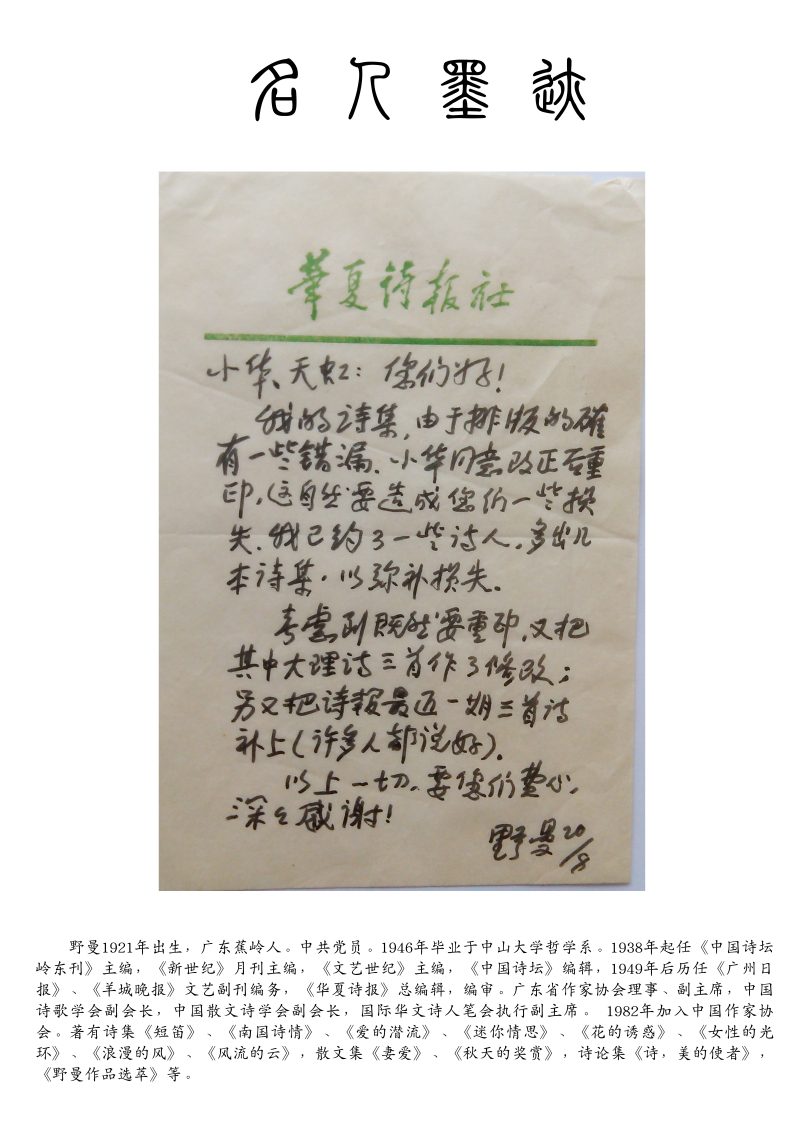 名人墨迹
華夏诗报社
小华、天虹：你们好！
我的诗集，由于排版的确
有一些错漏、小华同意改正后重
印，这自然要造成您们一些损
失。我已约了一些诗人，多出几
本诗集，以弥补损失。
考虑到既然要重印，又把
其中大理诗三首作了修改；
另又把诗报最近一期三首诗
补上（许多人都说好）。
以上一切，要您们费心，
深々感谢！
野曼 20/8
野曼1921年出生，广东蕉岭人。中共党员。1946年毕业于中山大学哲学系。1938年起任《中国诗坛
岭东刊》主编，《新世纪》月刊主编，《文艺世纪》主编，《中国诗坛》编辑，1949年后历任《广州日
报》、《羊城晚报》文艺副刊编务，《华夏诗报》总编辑，编审。广东省作家协会理事、副主席，中国
诗歌学会副会长，中国散文诗学会副会长，国际华文诗人笔会执行副主席。 1982年加入中国作家协
会。著有诗集《短笛》、《南国诗情》、《爱的潜流》、《迷你情思》、《花的诱惑》、《女性的光
环》、《浪漫的风》、《风流的云》，散文集《妻爱》、《秋天的奖赏》，诗论集《诗，美的使者》，
《野曼作品选萃》等。